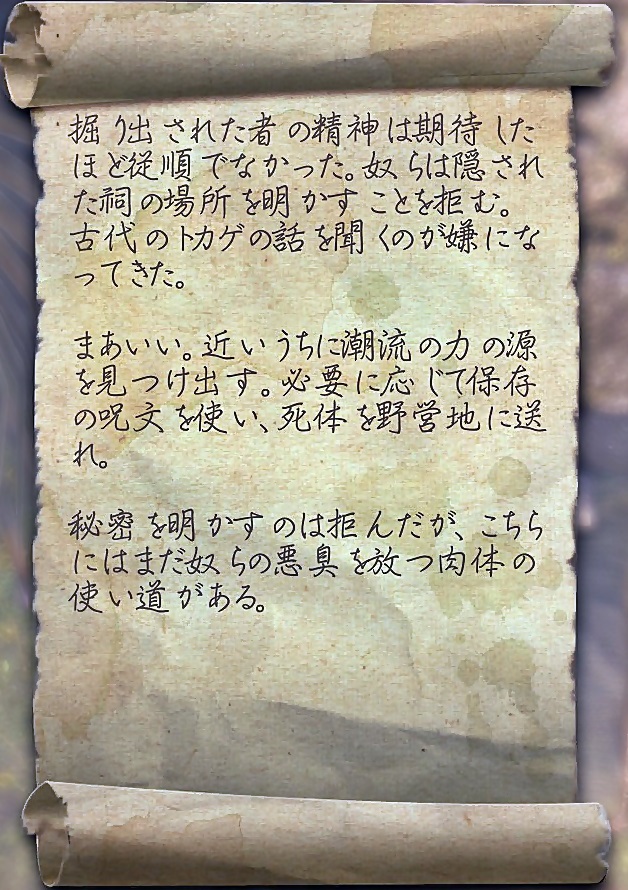 掘り出された者の精神は期待した
ほど従順でなかった。奴らは隠され
た祠の場所を明かすことを拒む。
古代のトカゲの話を聞くのが嫌にな
ってきた。
まあいい。近いうちに潮流の力の源
を見つけ出す。必要に応じて保存
の呪文を使い、死体を野営地に送
れ。
秘密を明かすのは拒んだが、こちら
にはまだ奴らの悪臭を放つ肉体の
使い道がある。